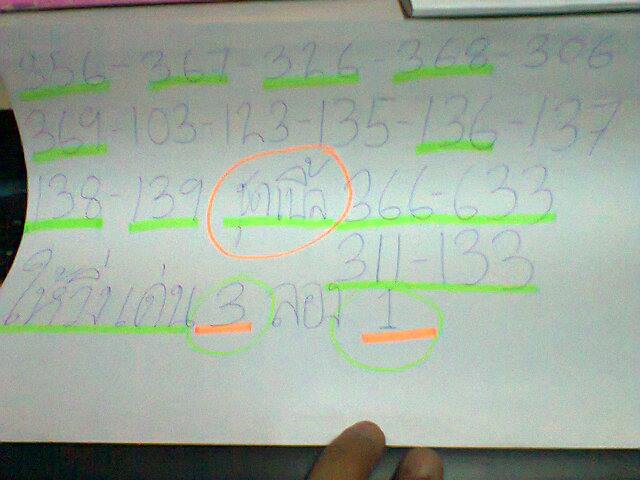 356-367-326-368-306
369-103-123-135-136-137
138-139 ชุดเบิ้ล 366-633
311-133
ให้วิ่งเด่น 3 ลอง 1